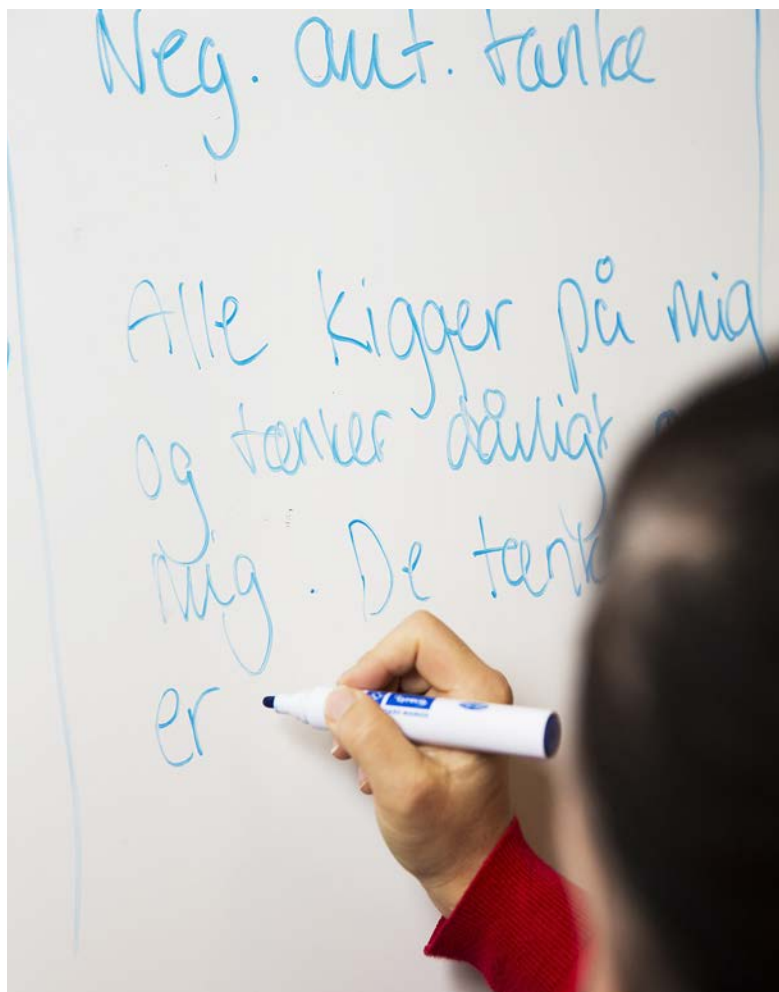 Neg. aut. tanke
Alle kigger på mig
og tænker dårligt
mig. De
er